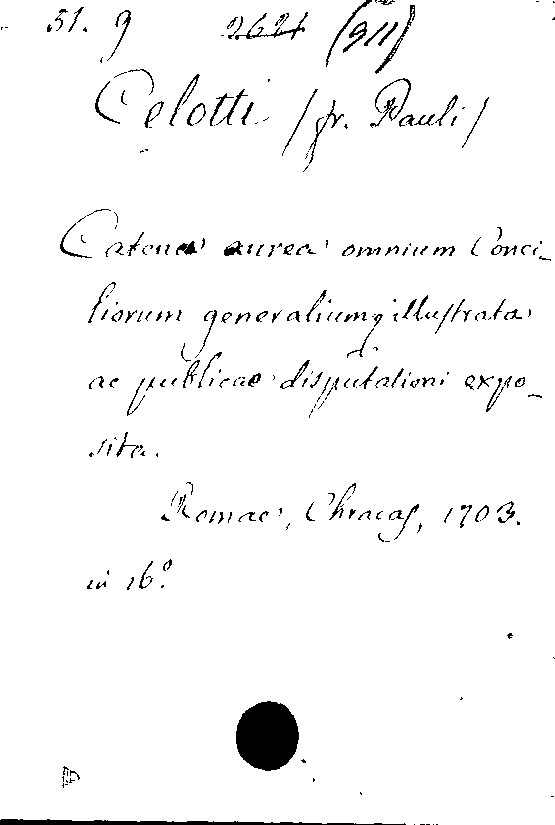 51. g 2621 (911)
Celotti /fr. Pauli/
Catena aurea omnium Conci-
liorum generalium, illustrata
ac publicae disputationi expo-
sita.
Romae, Chracas, 1703.
in 16.º